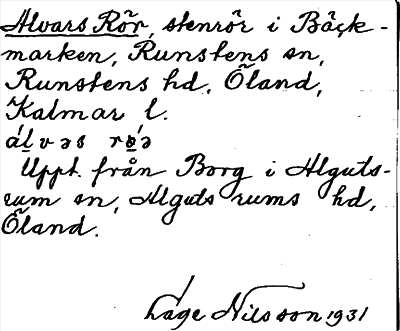 Alvars Rör, stenrör i Bäck-
marken, Runstens sn,
Runstens hd, Öland,
Kalmar l.
álvas røə
Uppt. från Borg i Alguts-
rum sn, Alguts rums hd,
Öland.
Lage Nilsson 1931